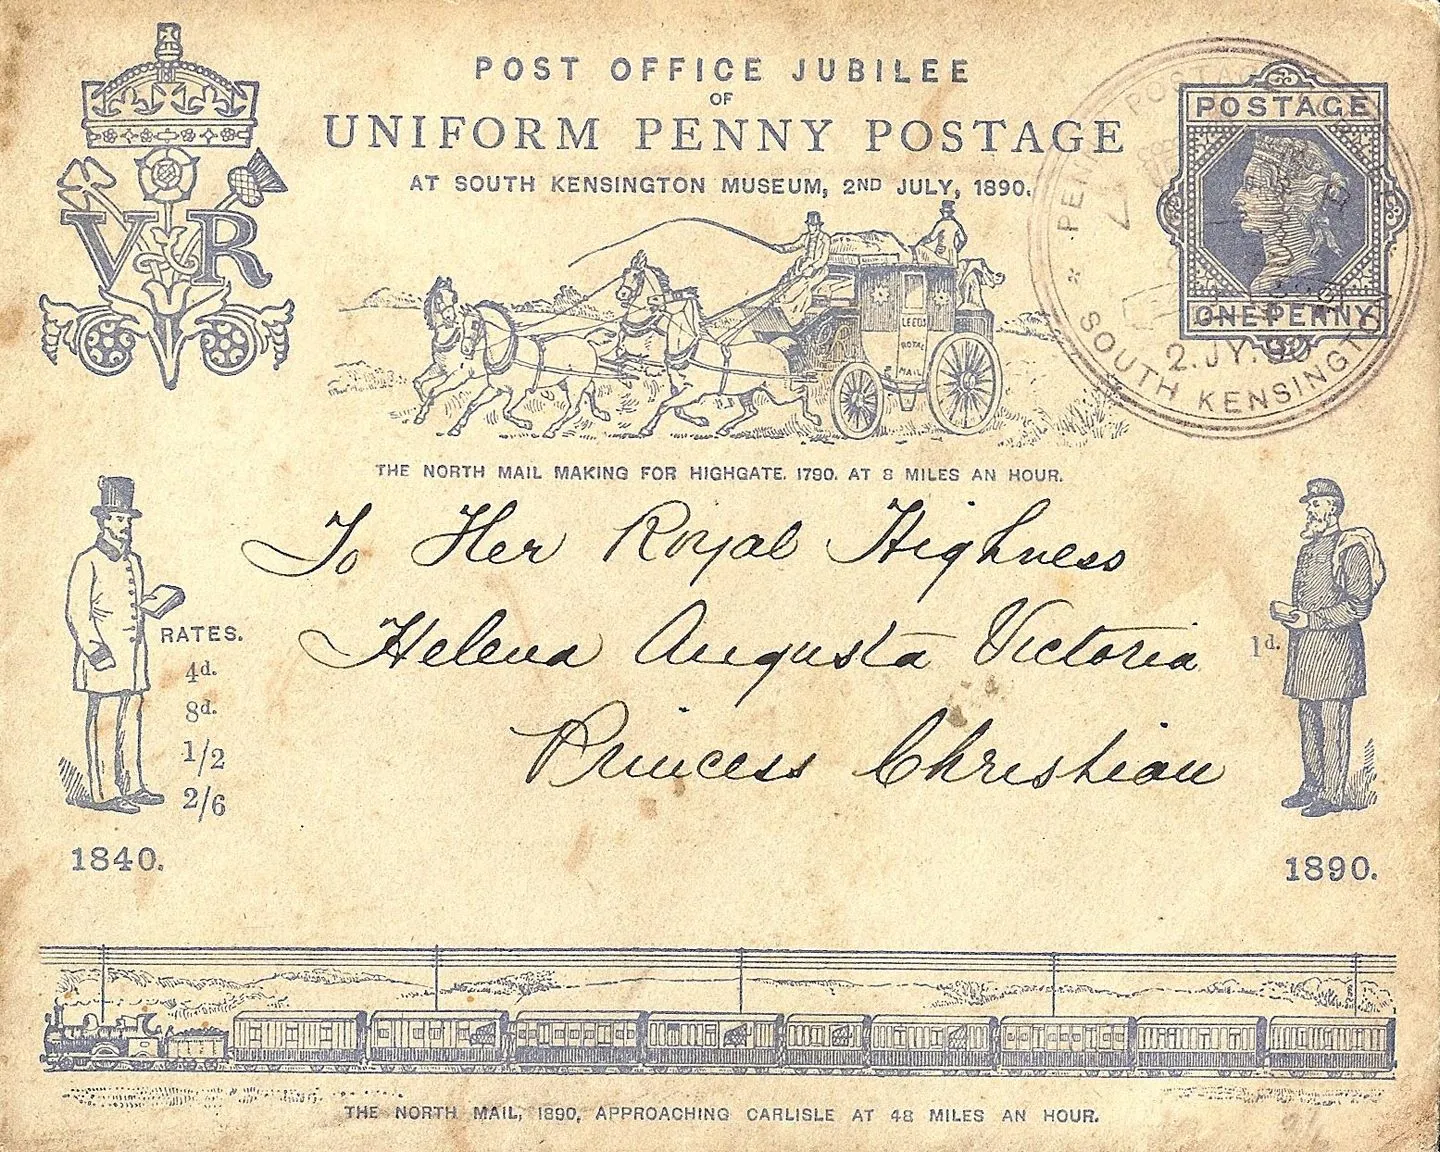 POST OFFICE JUBILEE
OF
UNIFORM PENNY POSTAGE
AT SOUTH KENSINGTON MUSEUM, 2ND JULY, 1890.
VR
POSTAGE
ONE PENNY
PENNY POSTAGE
2.JY.90
SOUTH KENSINGTON
LEEDS
ROYAL
MAIL
THE NORTH MAIL MAKING FOR HIGHGATE. 1790. AT 8 MILES AN HOUR.
To Her Royal Highness
Helena Augusta Victoria
Princess Christian
RATES.
4d.
8d.
1/2
2/6
1840.
1d.
1890.
THE NORTH MAIL, 1890, APPROACHING CARLISLE AT 48 MILES AN HOUR.